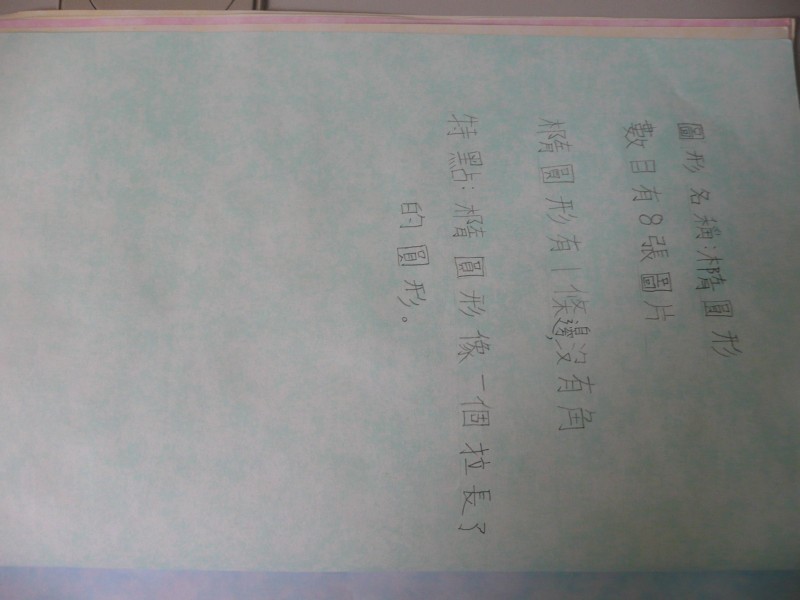 圖形名稱:橢圓形
數目有8張圖片
橢圓形有1條邊沒有角
特點:橢圓形像一個拉長了
的圓形。